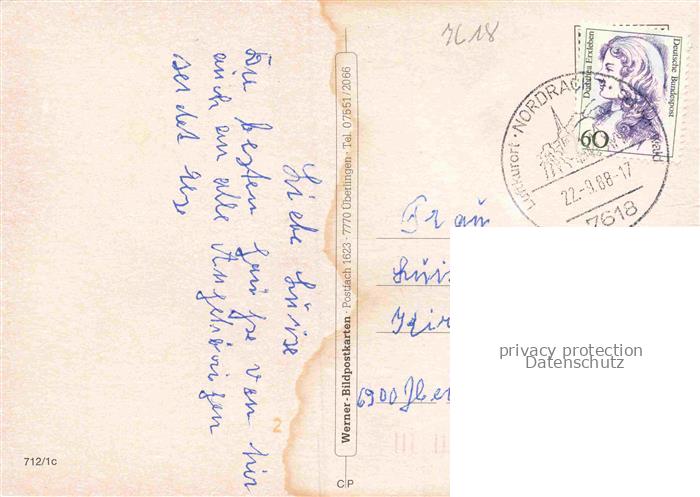 7618
Dorothea Erxleben
Deutsche Bundespost
60
Luftkurort · NORDRAC
wald
22.-9.88-17
7618
Liebe Luise
Die besten Grüße von hir
auch an alle Angehörigen
sendet
Werner-Bildpostkarten · Postfach 1623 · 7770 Überlingen · Tel. 07551/2066
Frau
Luis
Kir
6900
privacy protection
Datenschutz
712/1c
2
C|P